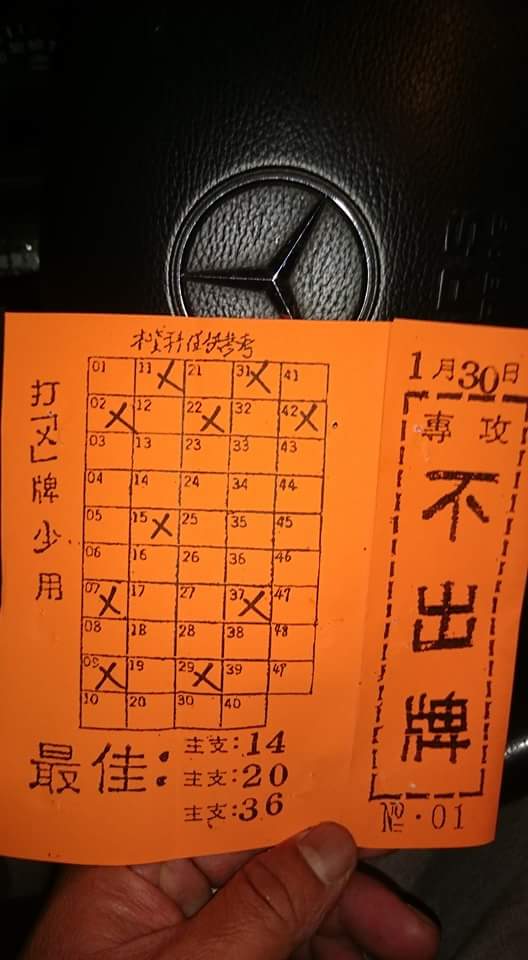 打「X」牌少用
01 11 X 21 31 X 41
02 X 12 22 X 32 42 X
03 13 23 33 43
04 14 24 34 44
05 15 X 25 35 45
06 16 26 36 46
07 X 17 27 37 X 47
08 18 28 38 48
09 X 19 29 X 39 49
10 20 30 40
最佳:
主支:14
主支:20
主支:36
1月30日
專攻
不出牌
№.01